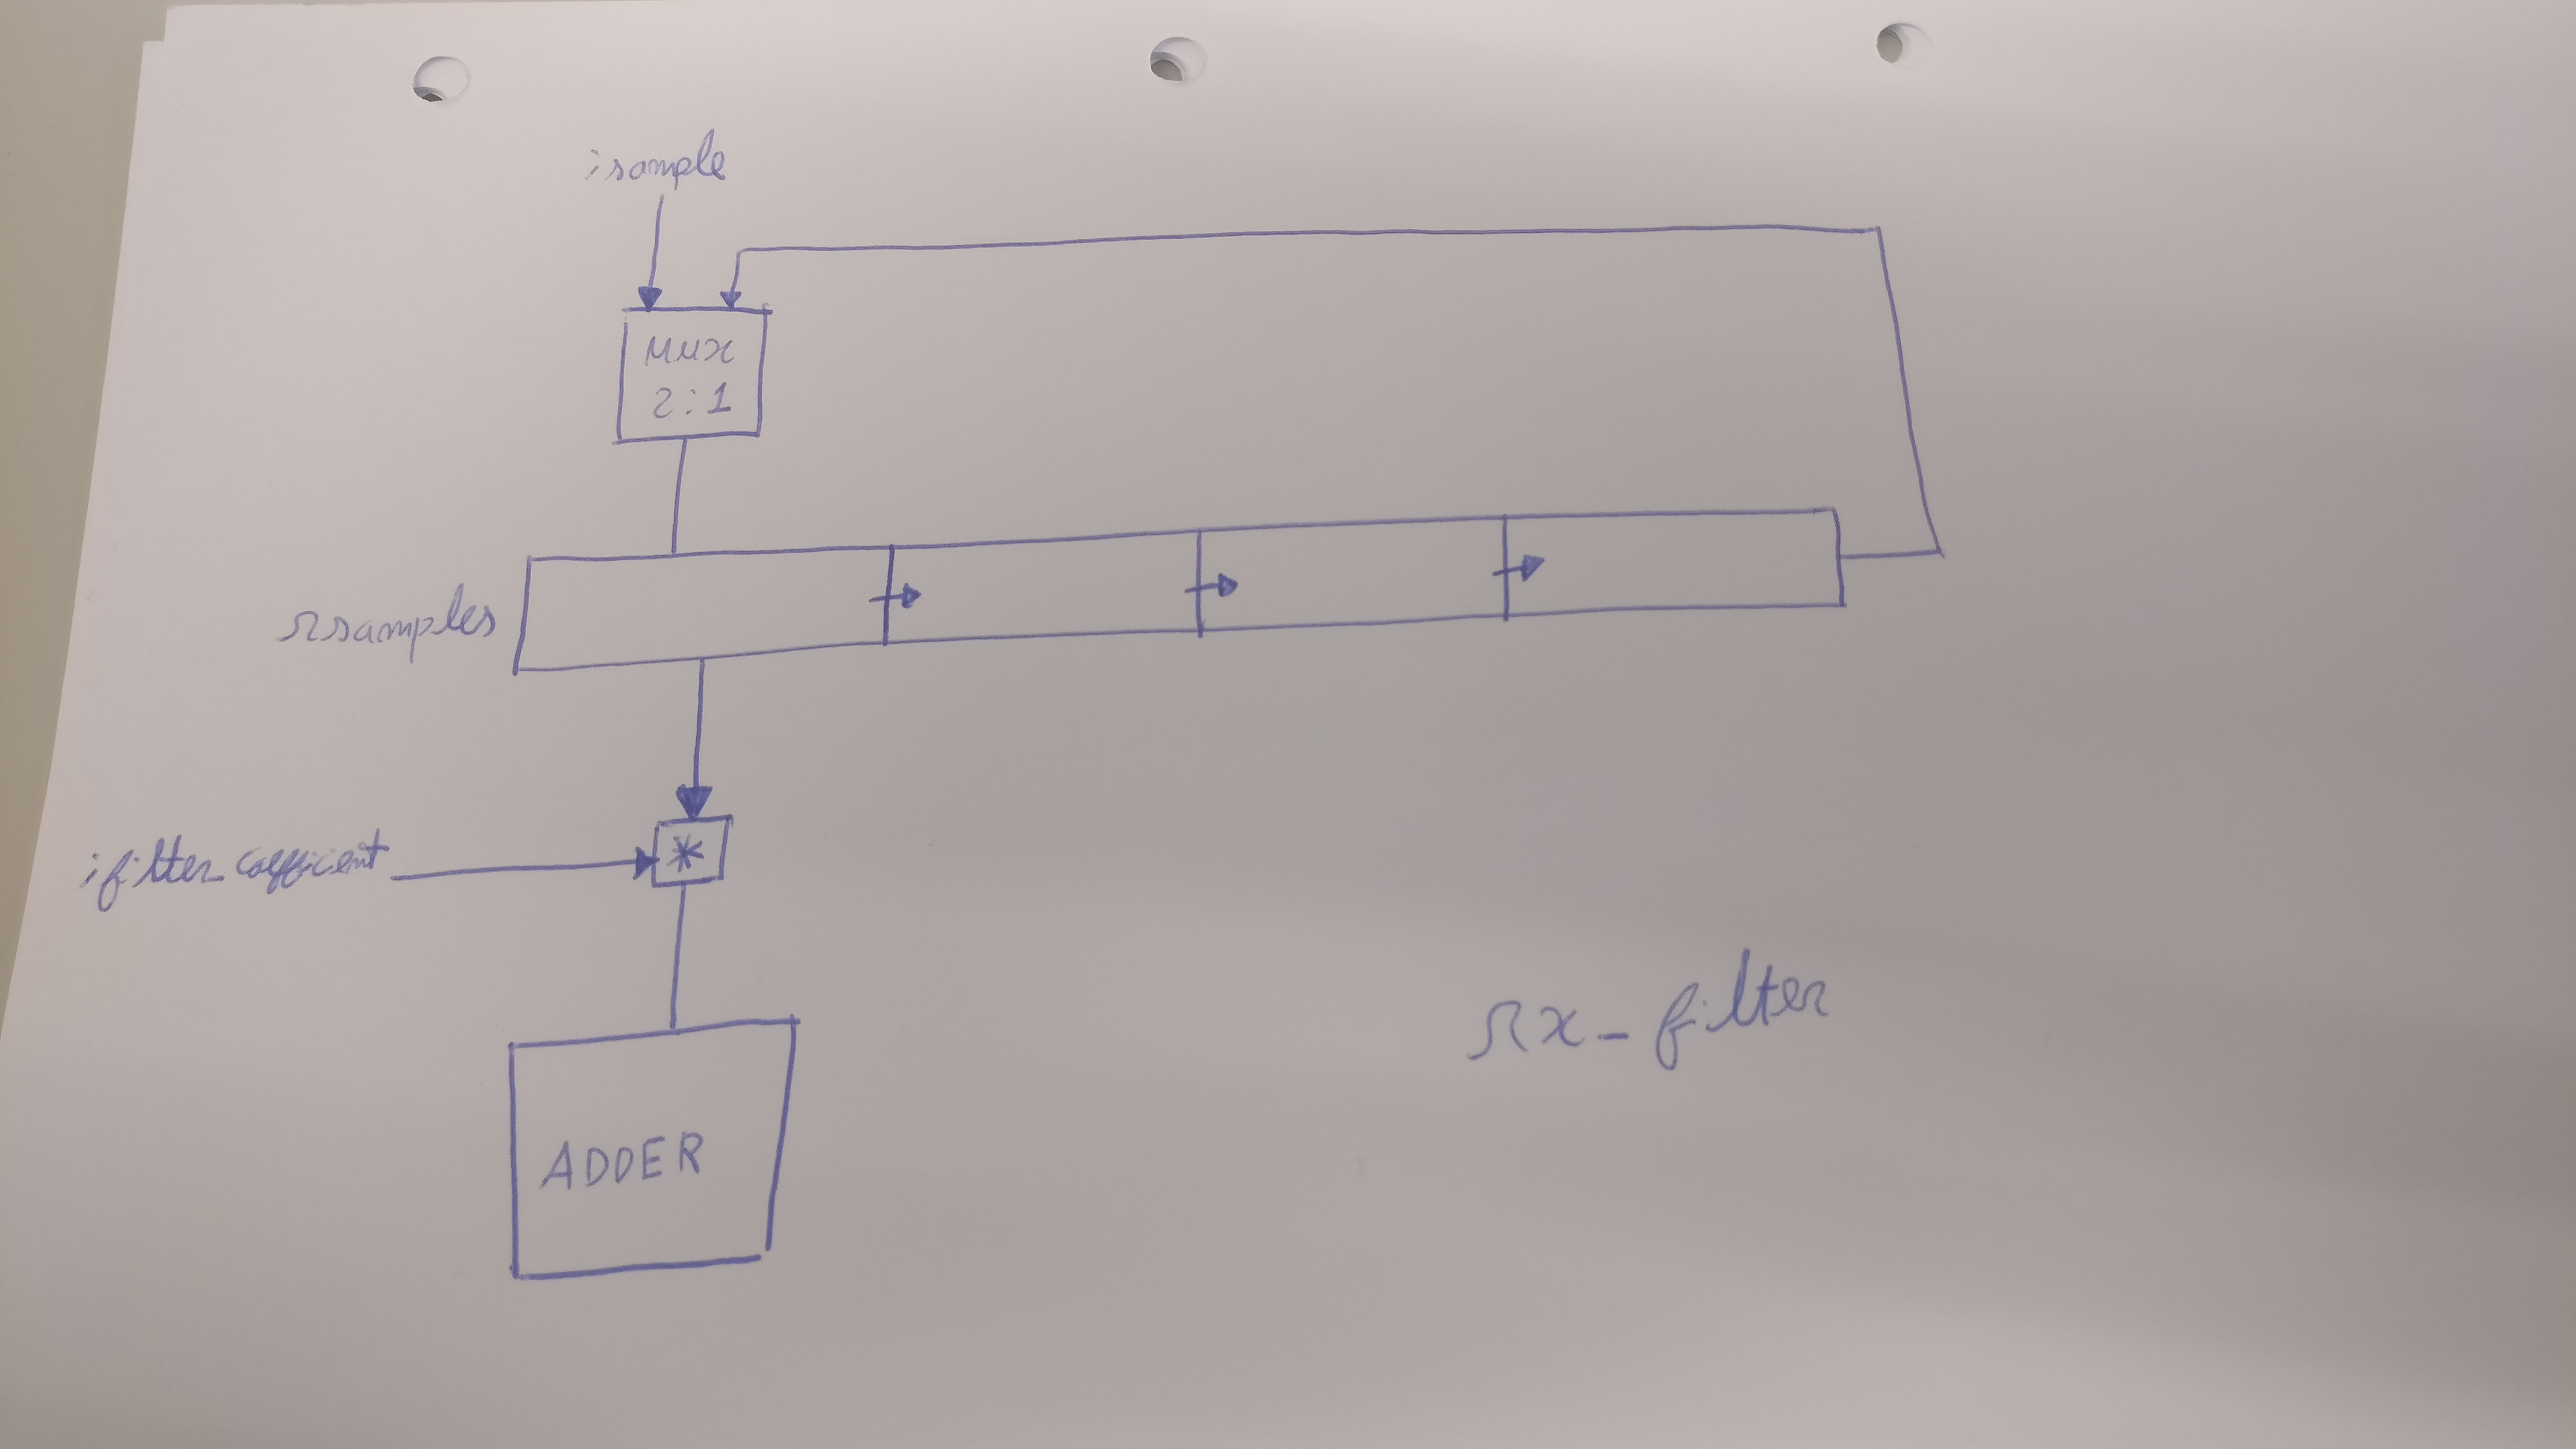 isample
MUX
2:1
rsamples
ifilter_coefficient
*
ADDER
rx_filter